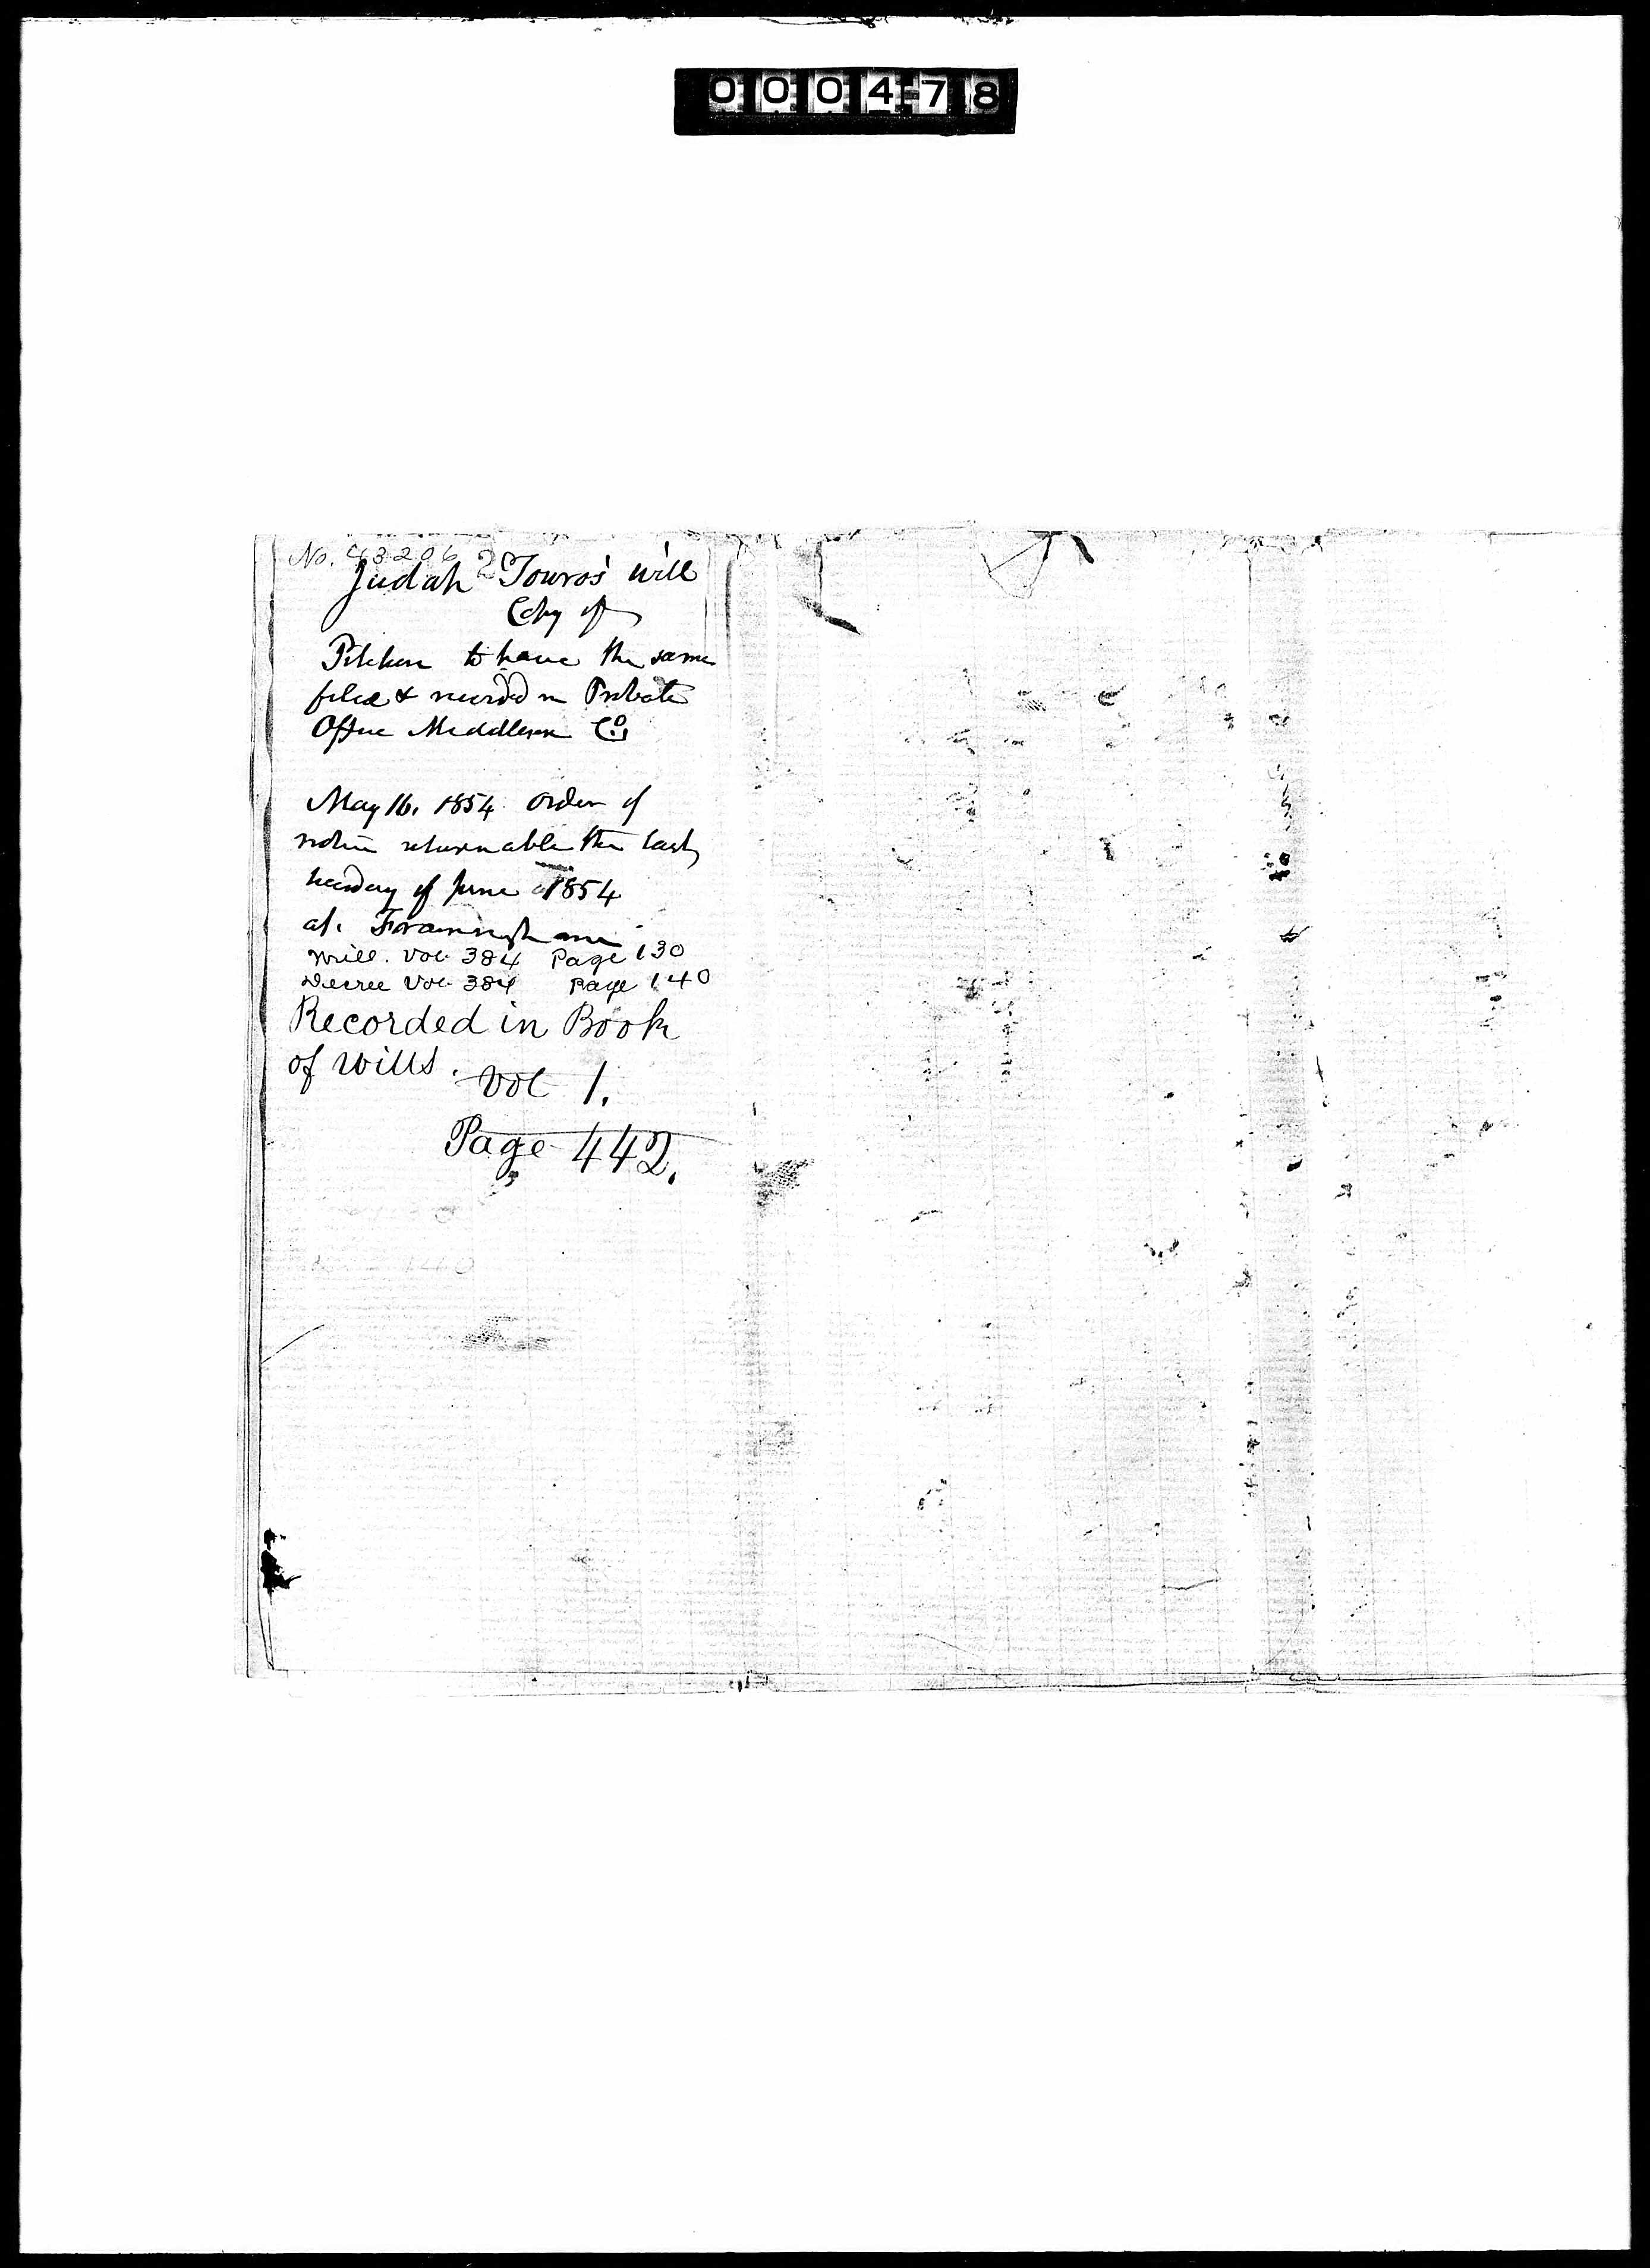 000478
No. 43206 2
Judah Touro's will
Copy of
Petition to have the same
filed & recorded in Probate
Office Middlesex Co
May 16. 1854. Order of
notice returnable the last
tuesday of June 1854
at. Framingham
Will. Vol. 384 Page 130
Decree Vol. 384 Page 140
Recorded in Book
of Wills.
Vol 1.
Page 442.